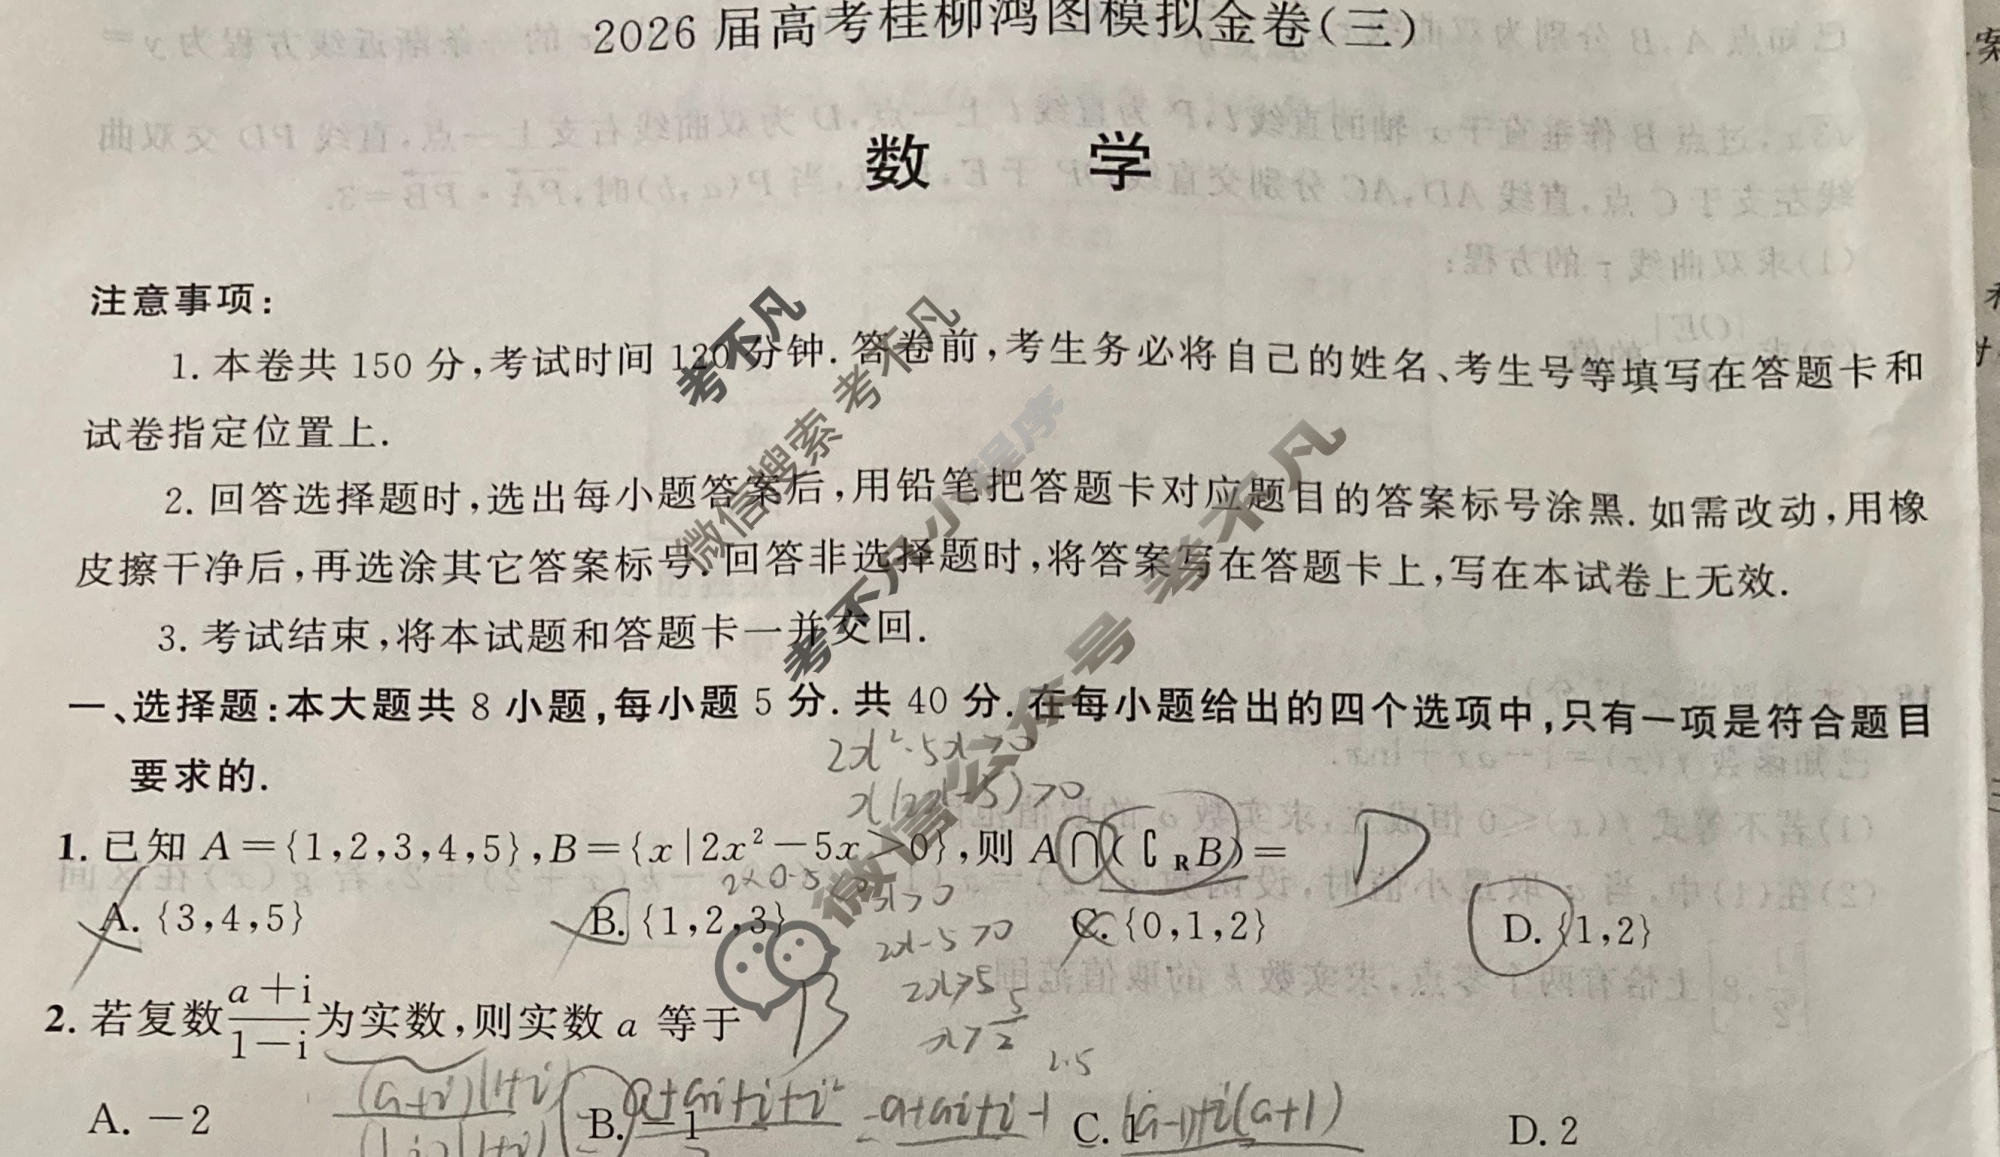 2026 届高考桂柳鸿图模拟金卷(三)
数 学
注意事项:
1. 本卷共 150 分,考试时间 120 分钟. 答卷前,考生务必将自己的姓名、考生号等填写在答题卡和
试卷指定位置上.
2. 回答选择题时,选出每小题答案后,用铅笔把答题卡对应题目的答案标号涂黑. 如需改动,用橡
皮擦干净后,再选涂其它答案标号. 回答非选择题时,将答案写在答题卡上,写在本试卷上无效.
3. 考试结束,将本试题和答题卡一并交回.
一、选择题:本大题共 8 小题,每小题 5 分. 共 40 分. 在每小题给出的四个选项中,只有一项是符合题目
要求的.
2x²-5x>0
x(2x-5)>0
1. 已知 A={1,2,3,4,5},B={x|2x²-5x>0},则 A∩(∁RB)= D
x>0
A. {3,4,5} B. {1,2,3} C. {0,1,2} D. {1,2}
2x-5>0
2x>5
x>5/2
2.5
2. 若复数(a+i)/(1-i)为实数,则实数 a 等于 B
A. -2 B. -1 C. 1 D. 2
(a+i)(1+i) a+ai+i+i² a+ai+i-1 (a-1)+i(a+1)
考不凡
微信搜索 考不凡
考不凡小程序
微信公众号 考不凡